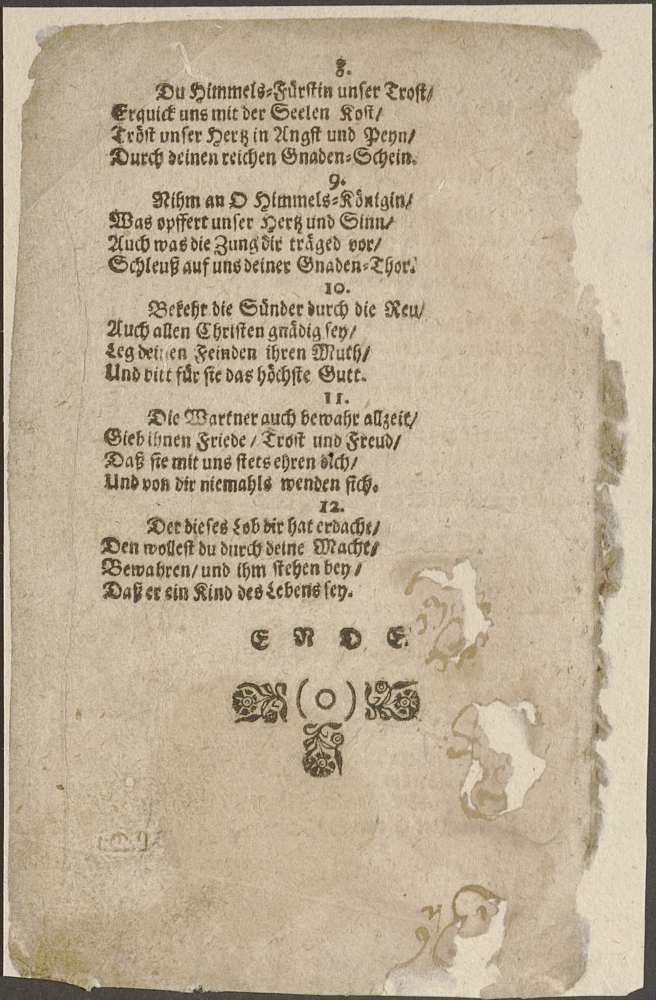 8.
Du Himmels=Fürstin unser Trost/
Erquick uns mit der Seelen Kost/
Tröst unser Hertz in Angst und Peyn/
Durch deinen reichen Gnaden=Schein.
9.
Nihm an O Himmels=Königin/
Was opffert unser Hertz und Sinn/
Auch was die Zung dir träged vor/
Schleuß auf uns deiner Gnaden=Thor.
10.
Bekehr die Sünder durch die Reu/
Auch allen Christen gnädig sey/
Leg deinen Feinden ihren Muth/
Und bitt für sie das höchste Gutt.
11.
Die Wartner auch bewahr allzeit/
Gieb ihnen Friede / Trost und Freud/
Daß sie mit uns stets ehren dich/
Und von dir niemahls wenden sich.
12.
Der dieses Lob dir hat erdacht/
Den wollest du durch deine Macht/
Bewahren/ und ihm stehen bey /
Daß er ein Kind des Lebens sey.
E N D E
(O)